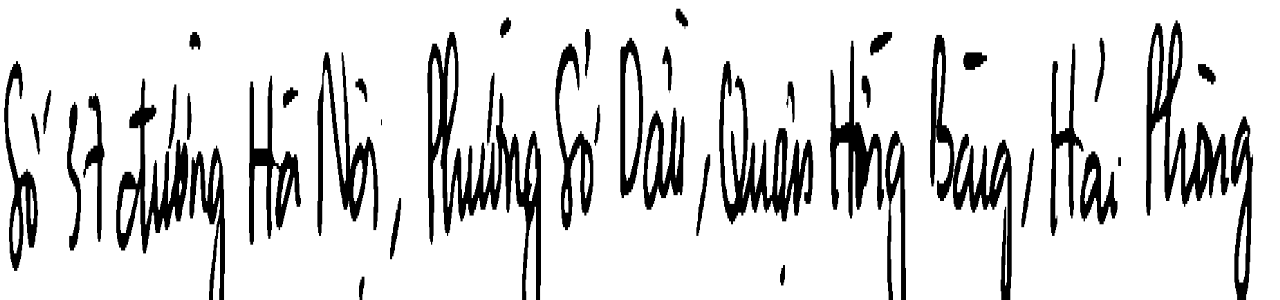 Số 37 đường Hà Nội, Phường Sở Dầu, Quận Hồng Bàng, Hải Phòng